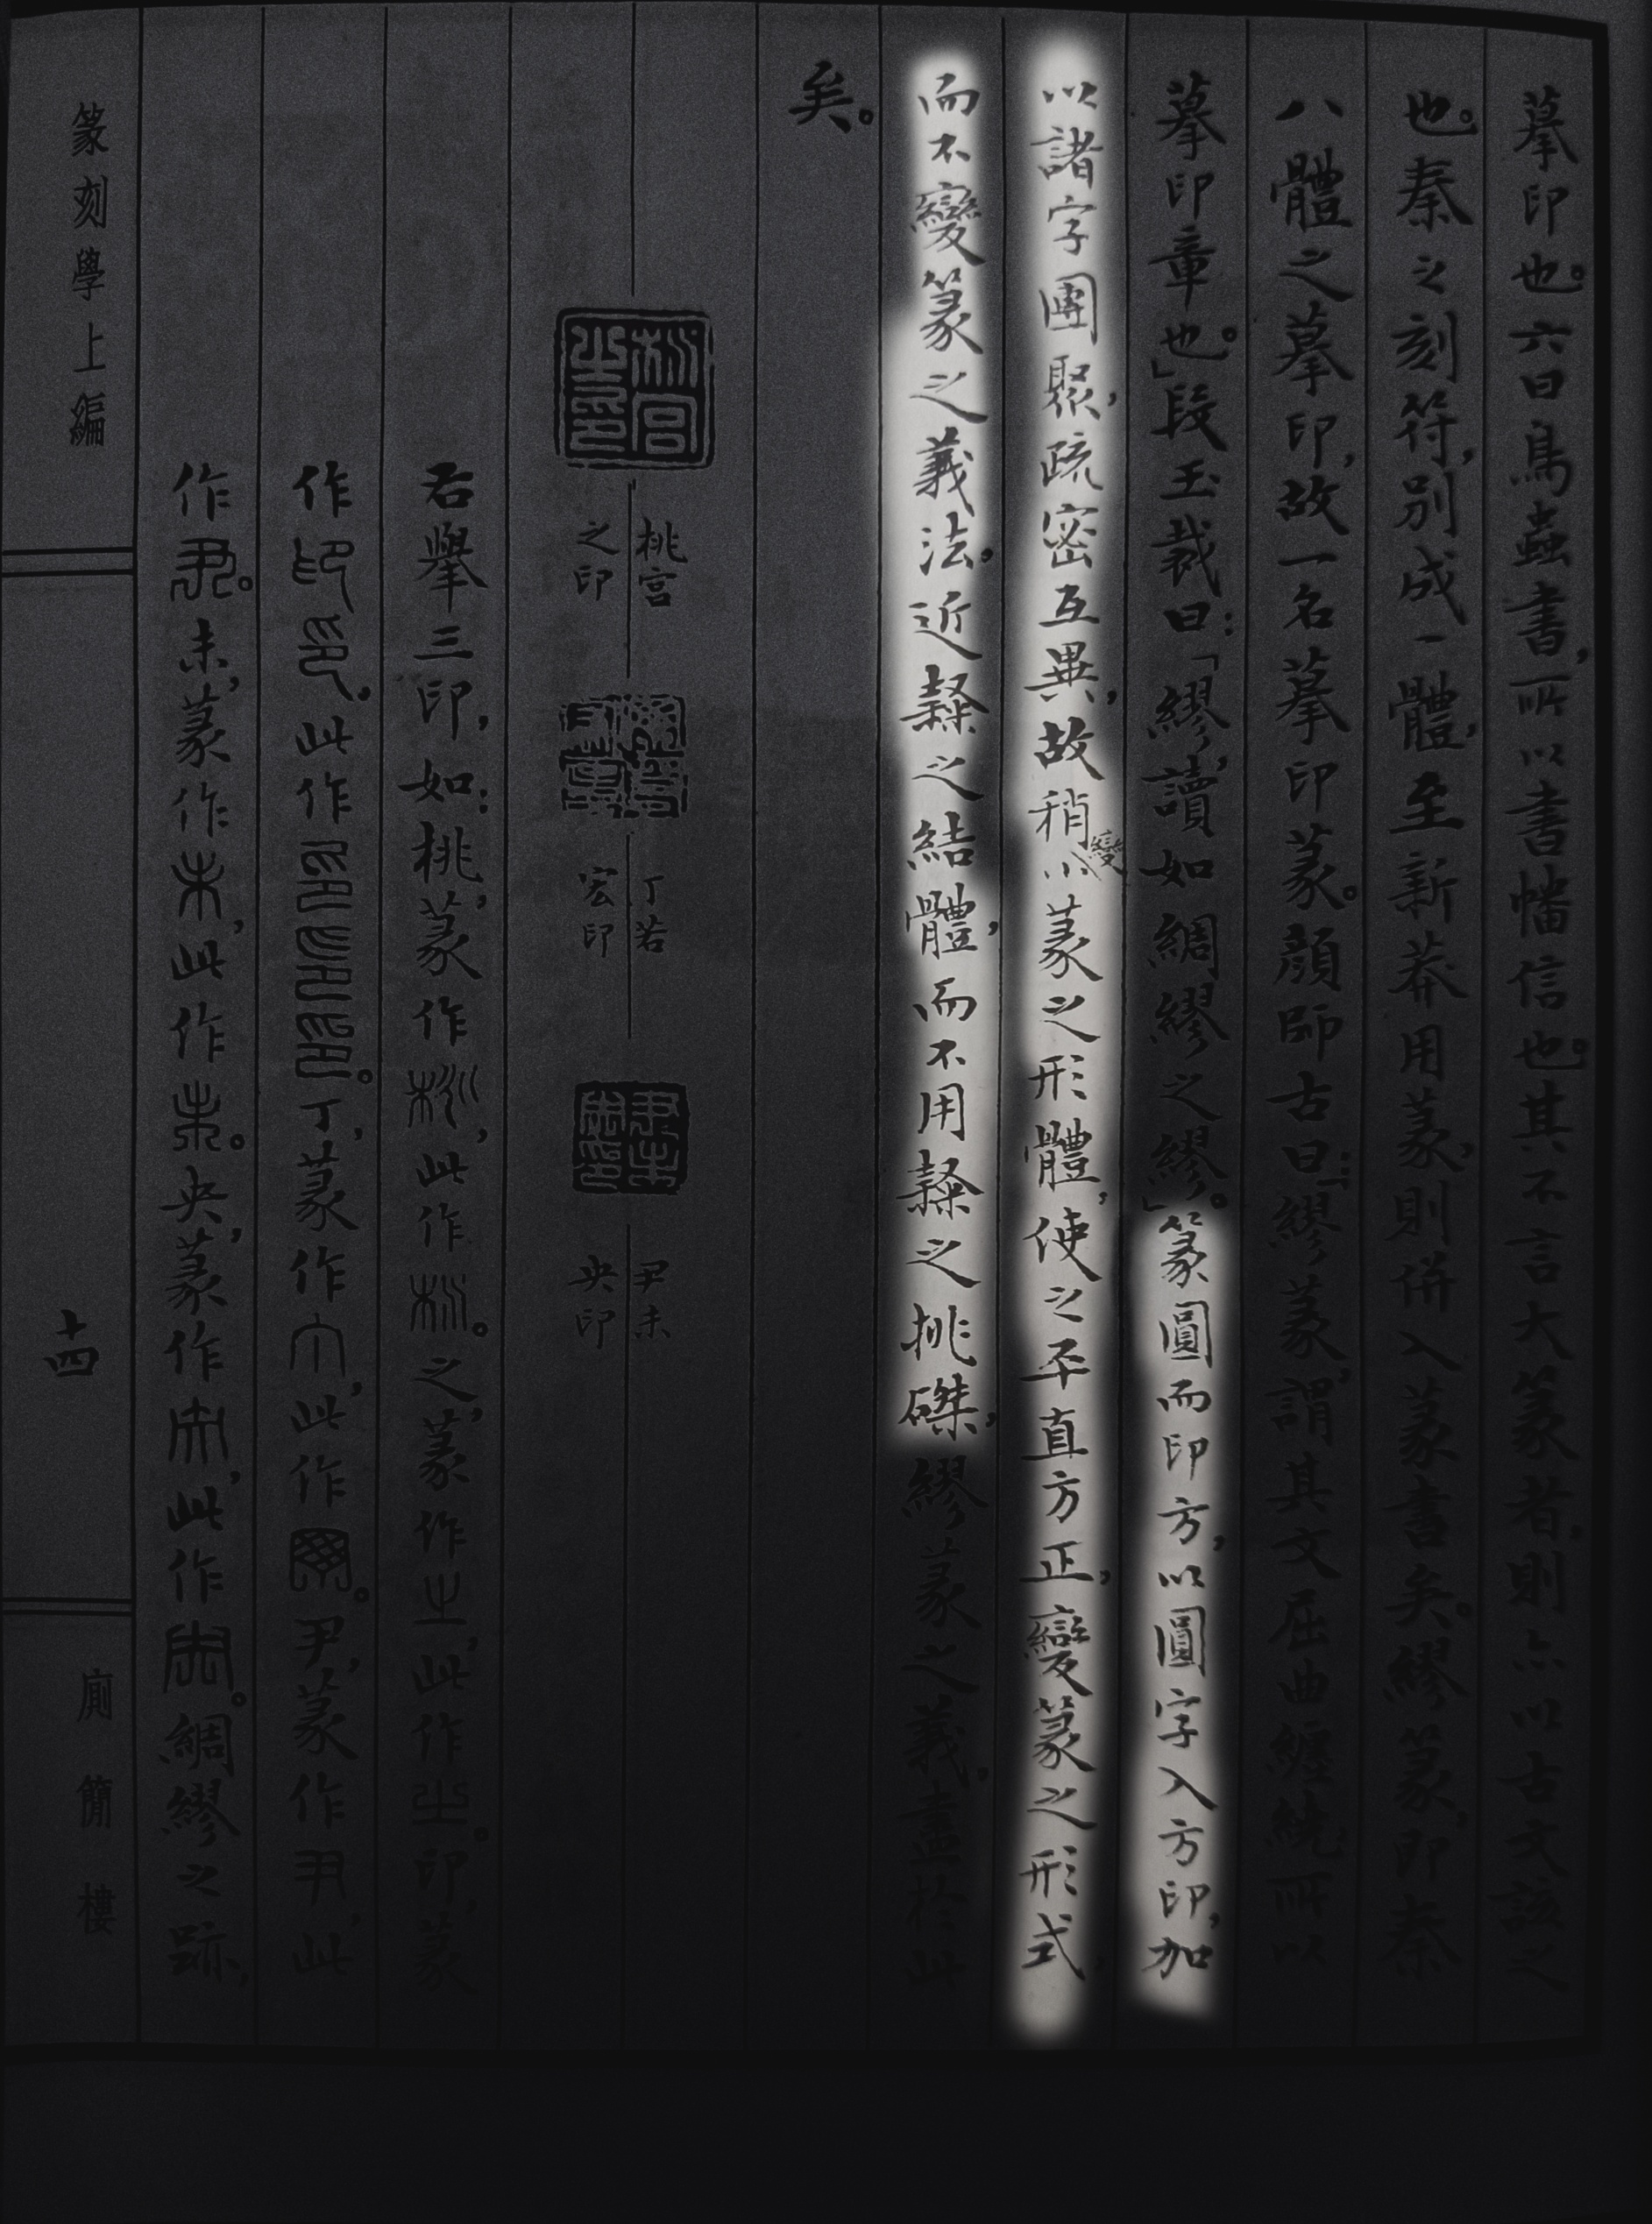 摹印也。六曰鳥蟲書，所以書幡信也。其不言大篆者，則亦以古文該之
也。秦之刻符，別成一體，至新莽用篆，則併入篆書矣。繆篆，即秦
八體之摹印，故一名摹印篆。顏師古曰：「繆篆，謂其文屈曲纏繞，所以
摹印章也。」段玉裁曰：「繆，讀如綢繆之繆。」篆圓而印方，以圓字入方印，加
以諸字團聚，疏密互異，故稍變小篆之形體，使之平直方正。變篆之形式，
而不變篆之義法。近隸之結體，而不用隸之挑磔，繆篆之義，盡於此
矣。
桃宮
之印
丁若
宏印
尹未
央印
右舉三印，如：桃，篆作，此作。之，篆作，此作。印，篆
作，此作。丁，篆作，此作。尹，篆作，此
作。未，篆作，此作。央，篆作，此作。綢繆之跡，
篆刻學上編
十四
廁簡樓